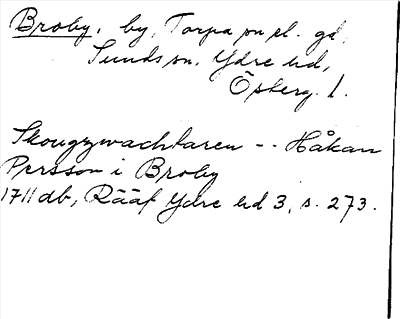 Broby, by, Torpa sn el. gd,
Sunds sn, Ydre hd,
Österg. l.
Skougzwachtaren -- Håkan
Persson i Broby
1711 db, Rääf Ydre hd 3, s. 273.